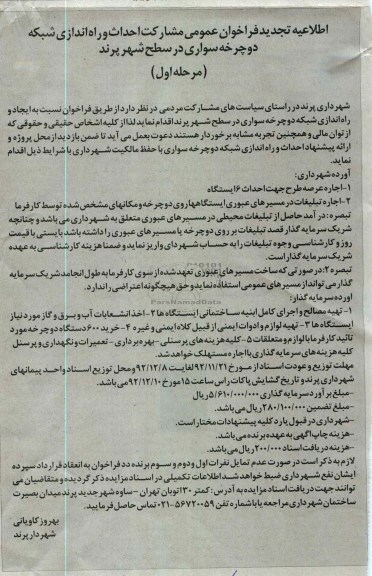 اطلاعیه تجدید فراخوان عمومی مشارکت احداث و راه اندازی شبکه
دوچرخه سواری در سطح شهر پرند
(مرحله اول)
شهرداری پرند در راستای سیاست های مشارکت مردمی در نظر دارد از طریق فراخوان نسبت به ایجاد و
راه اندازی شبکه دوچرخه سواری در سطح شهر پرند اقدام نماید لذا از کلیه اشخاص حقیقی و حقوقی که
از توان مالی و همچنین تجربه مشابه برخوردار هستند دعوت بعمل می آید تا ضمن بازدید از محل پروژه و
ارائه پیشنهاد احداث و راه اندازی شبکه دوچرخه سواری با حفظ مالکیت شهرداری با شرایط ذیل اقدام
نماید.
آورده شهرداری:
۱-اجاره عرصه طرح جهت احداث ۶ ایستگاه
۲-اجاره تبلیغات در مسیرهای عبوری ایستگاهها روی دوچرخه و مکانهای مشخص شده توسط کارفرما
تبصره: در آمد حاصل از تبلیغات محیطی در مسیرهای عبوری متعلق به شهرداری می باشد و چنانچه
شریک سرمایه گذار قصد تبلیغات بر روی دوچرخه یا مسیرهای عبوری را داشته باشد بایستی با قیمت
روز و کارشناسی وجوه تبلیغات را به حساب شهرداری واریز نماید و ضمنا هزینه کارشناسی به عهده
شریک سرمایه گذار است.
تبصره ۲: در صورتی که ساخت مسیرهای عبوری تعهد شده از سوی کارفرما به طول انجامد شریک سرمایه
گذار می تواند از مسیرهای عمومی استفاده نماید و حق هیچگونه اعتراضی را ندارد.
ParsNamadData
آورده سرمایه گذار:
۱-تهیه مصالح و اجرای کامل ابنیه ساختمانی ایستگاه ها ۲-اخذ انشعابات آب و برق و گاز مورد نیاز
ایستگاه ها ۳-تهیه لوازم و ادوات ایمنی از قبیل کلاه ایمنی و غیره ۴-خرید ۶۰۰ دستگاه دوچرخه مورد
تائید کارفرما با لوازم و متعلقات ۵-کلیه هزینه های پرسنلی-بهره برداری-تعمیرات و نگهداری و پرسنل
کلیه هزینه های سرمایه گذاری با اجاره مستهلک خواهد شد.
مهلت توزیع و عودت اسناد از مورخ ۹۲/۱۱/۲۱ لغایت ۹۲/۱۲/۸ و محل توزیع اسناد واحد پیمانهای
شهرداری پرند و تاریخ گشایش پاکات راس ساعت ۱۵ مورخ ۹۲/۱۲/۱۰ می باشد.
-مبلغ برآورد سرمایه گذاری ۵/۶۱۰/۰۰۰/۰۰۰ ریال
-مبلغ تضمین ۲۸۰/۱۰۰/۰۰۰ ریال می باشد.
-شهرداری در قبول یا رد کلیه پیشنهادات مختار است.
-هزینه چاپ آگهی به عهده برنده می باشد.
-هزینه دریافت اسناد ۲۰۰/۰۰۰ ریال می باشد.
لازم به ذکر است در صورت عدم تمایل نفرات اول و دوم و سوم برنده در فراخوان به انعقاد قرارداد سپرده
ایشان نفع شهرداری ضبط خواهد شد اطلاعات تکمیلی در اسناد مزایده ذکر گردیده و متقاضیان می
توانند جهت دریافت اسناد مزایده به آدرس: کمتر ۳۰ اتوبان تهران - ساوه شهر جدید پرند میدان بصیرت
ساختمان شهرداری مراجعه یا با شماره تلفن ۵۶۷۲۰۰۵۹-۰۲۱ تماس حاصل فرمایید.
بهروز کاویانی
شهردار پرند